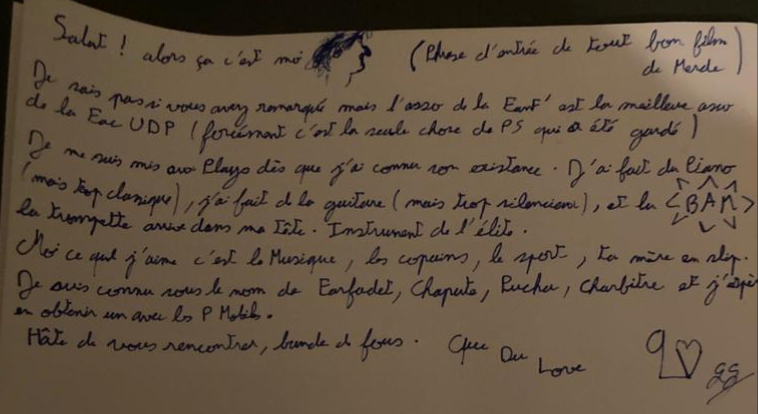 Salut ! alors ça c'est moi (Phrase d'entrée de tout bon film
de Merde)
Je sais pas si vous avez remarqué mais l'asso de la Fanf' est la meilleure asso
de la Fac UDP (forcément c'est la seule chose de P5 qui a été gardé)
Je me suis mis aux Plays dès que j'ai connu son existence. J'ai fait du Piano
(mais trop classique), j'ai fait de la guitare (mais trop silencieux), et la <BAM>
la trompette arrive dans ma tête. Instrument de l'élite.
Moi ce que j'aime c'est la Musique, les copains, le sport, ta mère en slip.
Je suis connu sous le nom de Farfadet, Chapute, Pucha, Charbitre et j'espère
en obtenir un avec les P Mobils.
Hâte de vous rencontrer, bande de fous. Que Du Love